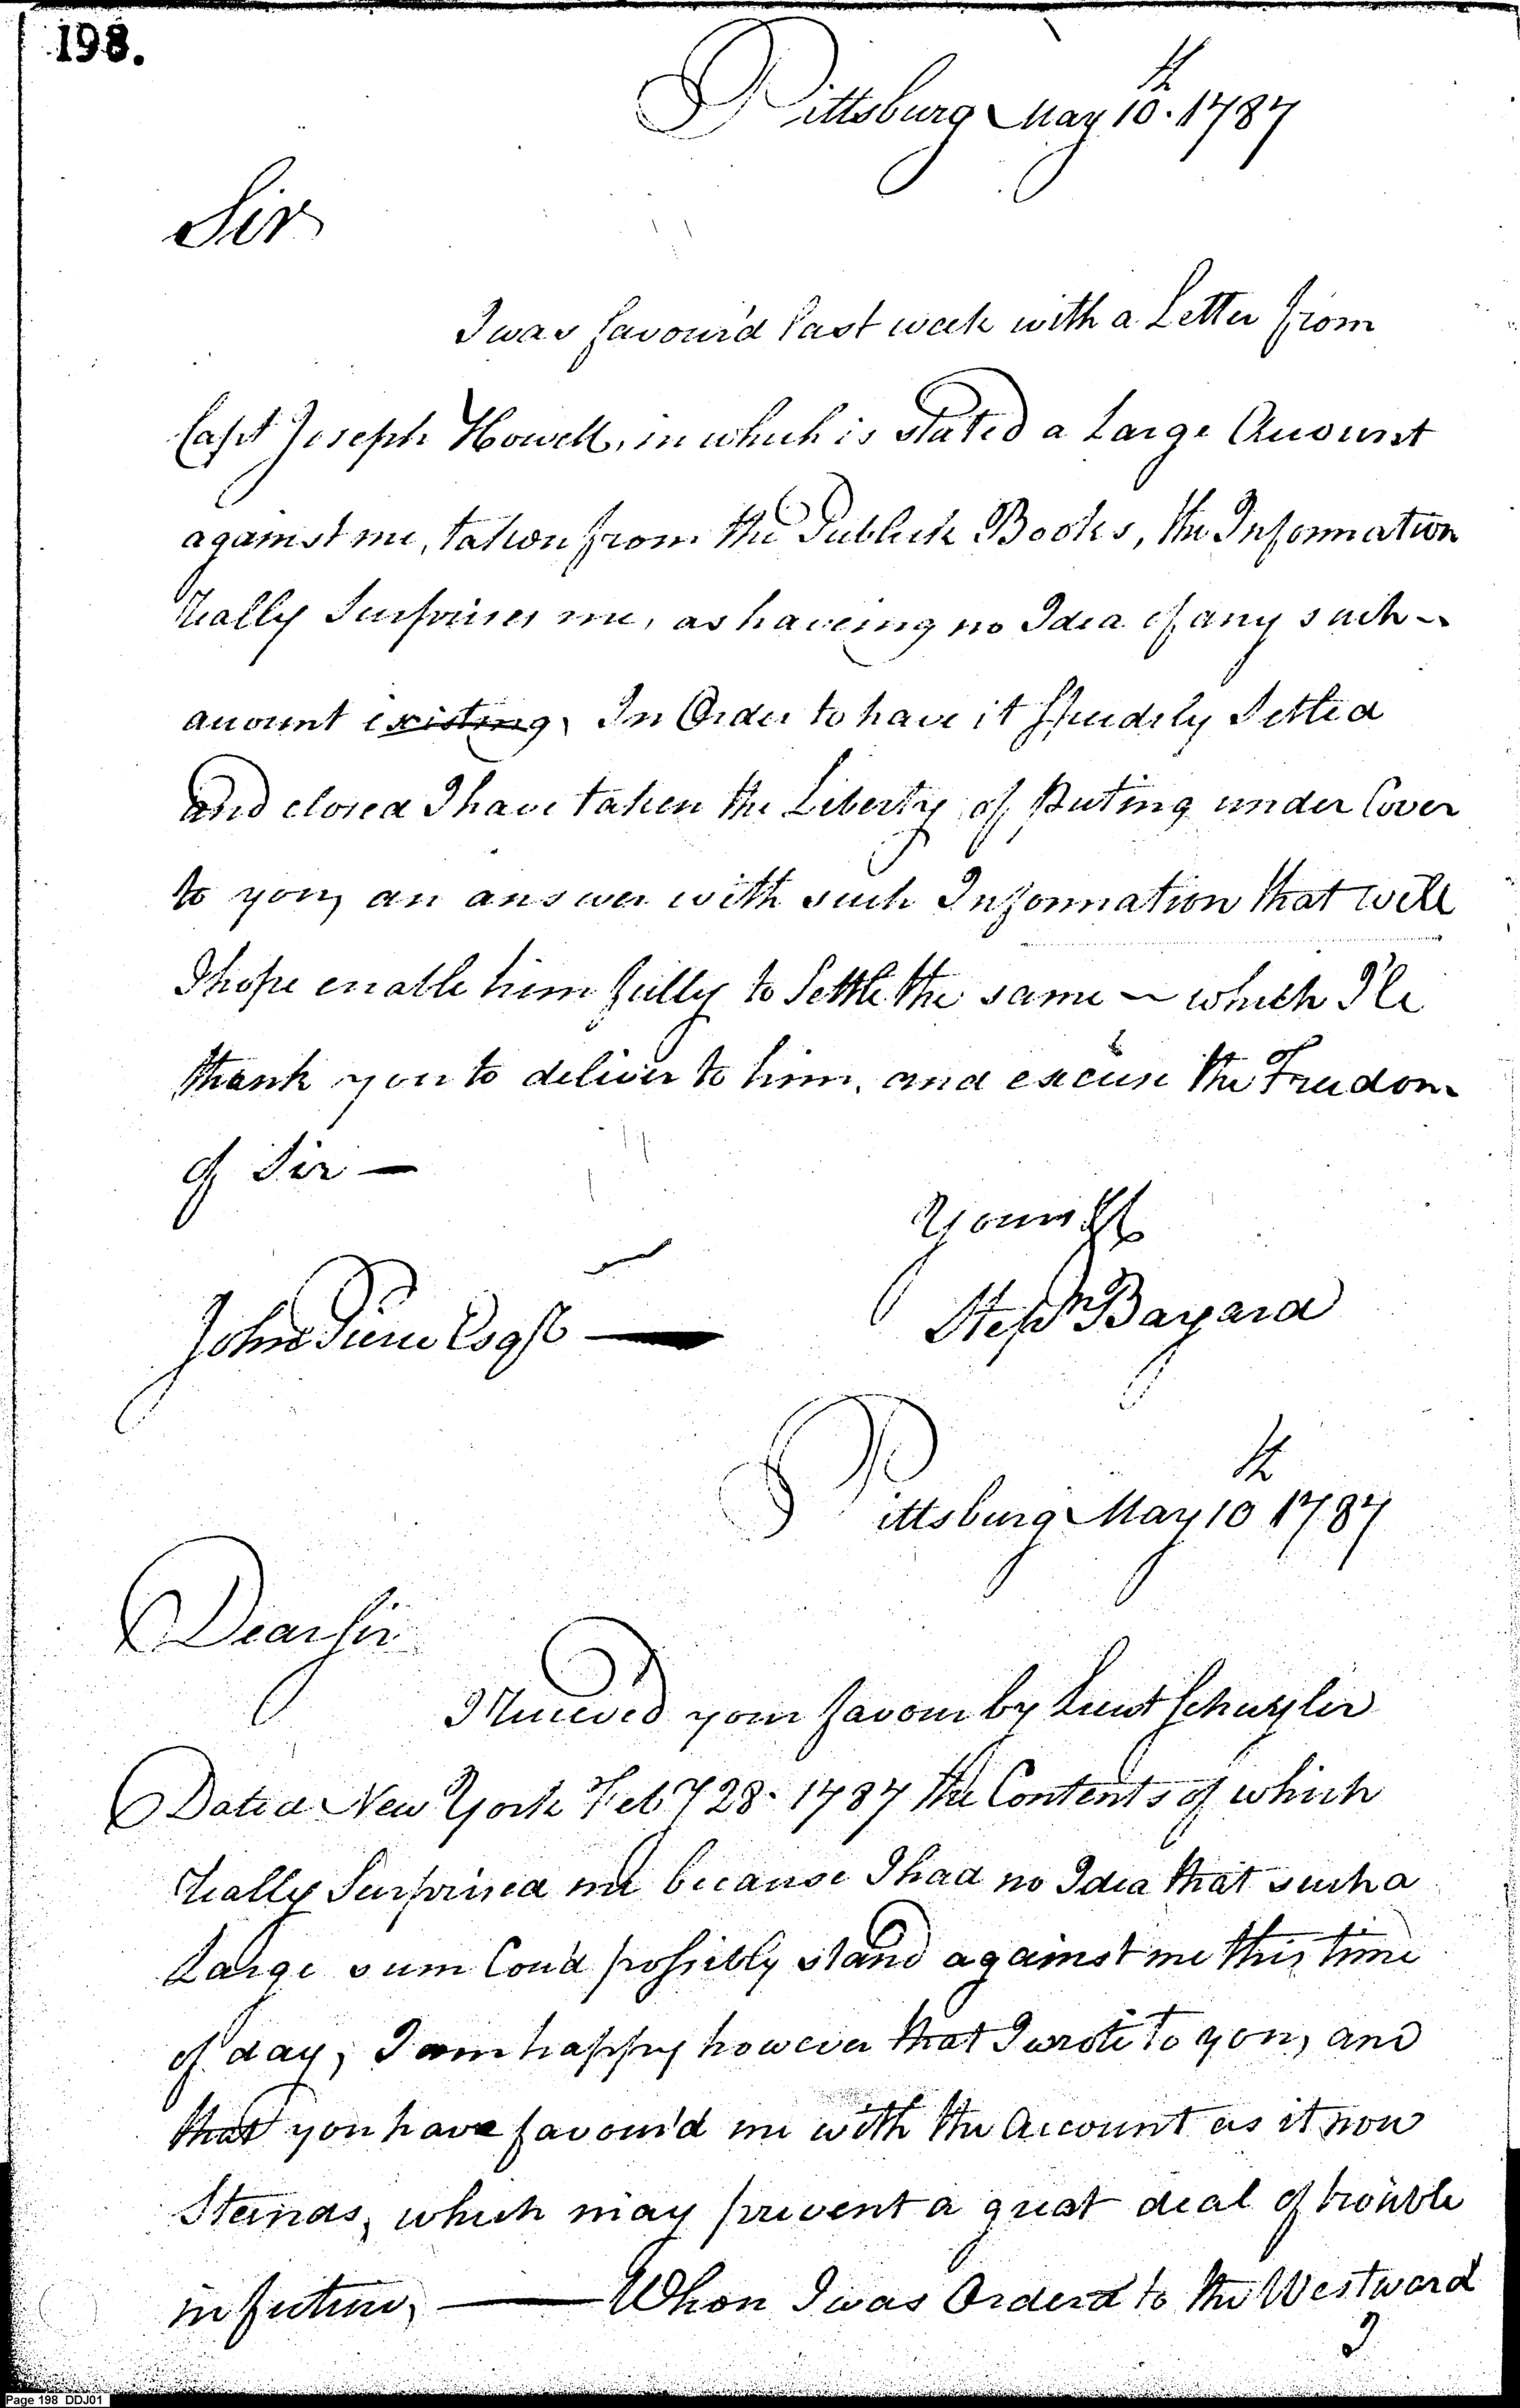 198.
Pittsburg May 10th. 1787
Sir
I was favour'd last week with a Letter from
Capt Joseph Howell, in which is stated a Large Account
against me, taken from the Publick Books, the Information
really Surprises me, as haveing no Idea of any such
account existing, In Order to have it speedily Settled
and closed I have taken the Liberty of Puting under Cover
to you, an answer with such Information that will
I hope enable him fully to Settle the same — which I'le
thank you to deliver to him, and excuse the Freedom
of Sir —
Yours &c
John Pierce Esqr —
Stepn Bayard
Pittsburg May 10th 1787
Dear Sir
I Received your favour by Lieut Schuyler
Dated New York Feby 28. 1787 the Contents of which
really Surprised me because I had no Idea that such a
Large sum Cou'd possibly stand against me this time
of day, I am happy however that I wrote to you, and
that you have favour'd me with the Account as it now
Stands, which may prevent a great deal of trouble
in future, — When I was Orderd to the Westward
I
Page 198 DDJ01